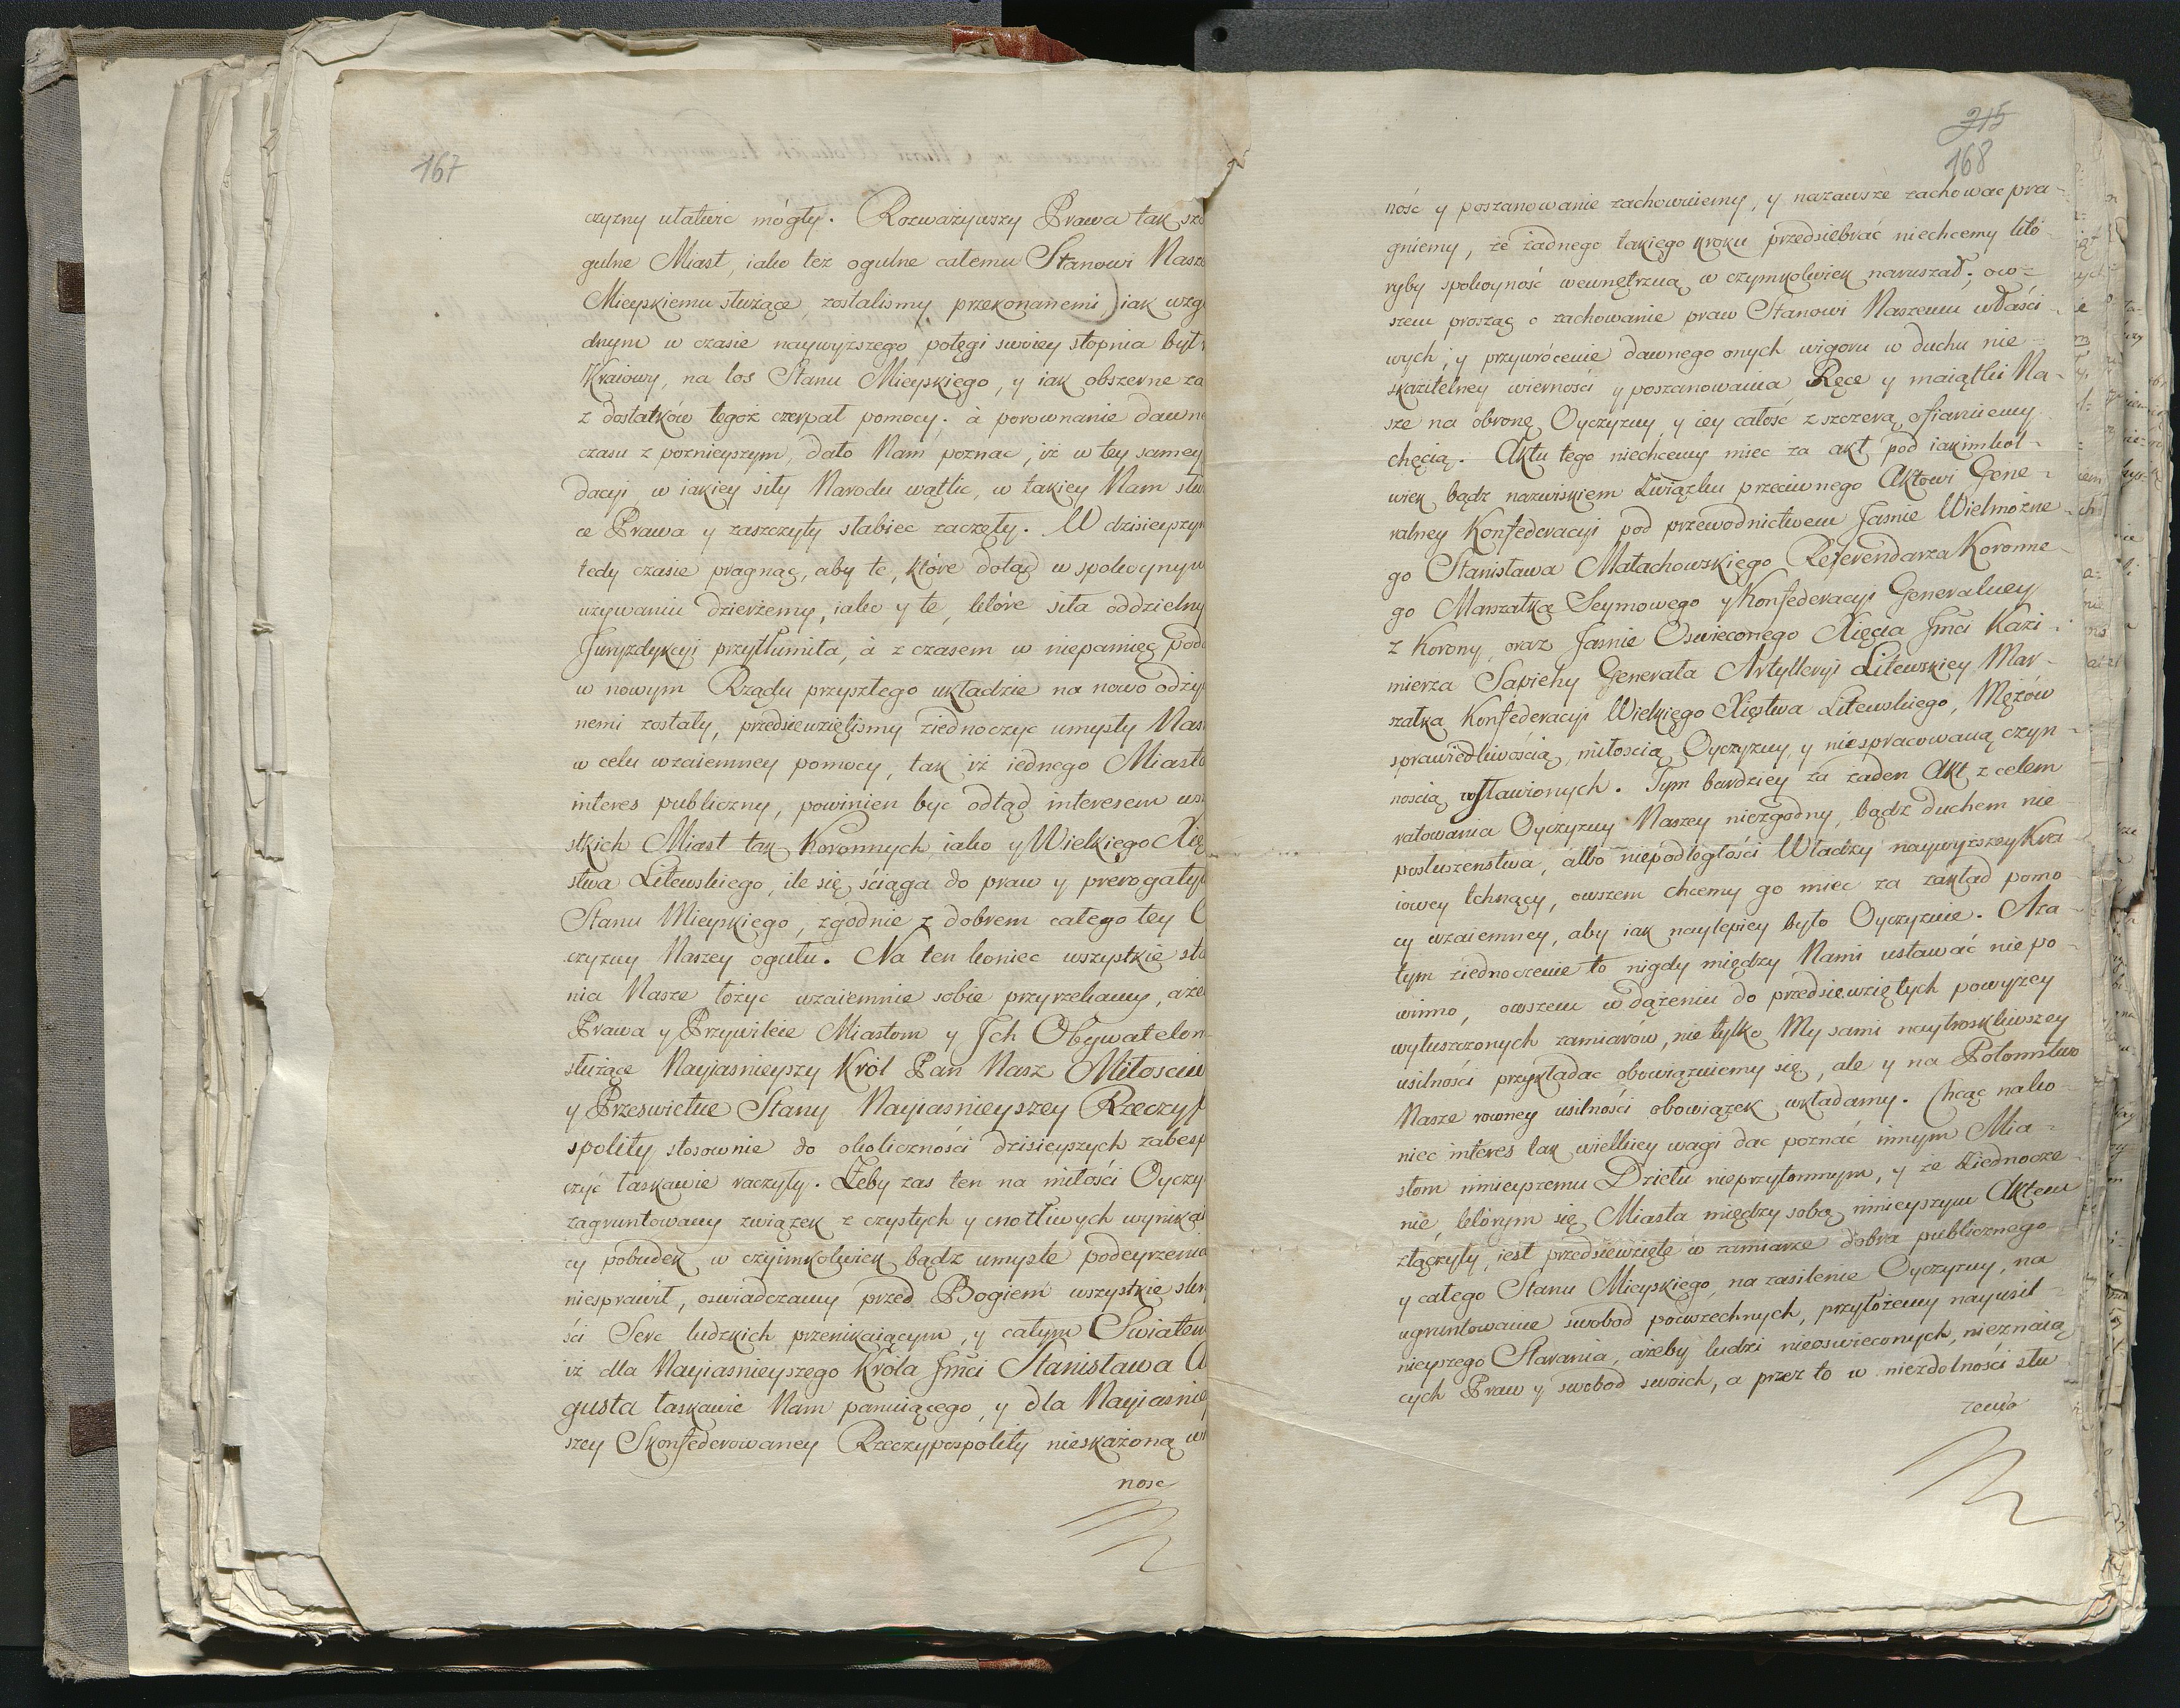 167
czyzny ułatwic mógły. Rozważywszy Prawa tak szc
gulne Miast, iako też ogulne całemu Stanowi Nasze
Mieyskiemu służące, zostalismy przekonanemi, iak wzg
dnym w czasie naywyższego potęgi swoiey stopnia był
Kraiowy, na los Stanu Mieyskiego, y iak obszerne za
z dostatków tegoż czerpał pomocy. à porownanie dawne
czasu z poznieyszym, dało Nam poznac, iż w tey samey
dacyi, w iakiey siły Narodu wątlic, w takiey Nam słu
ce Prawa y zaszczyty słabiec zaczęły. W dzisieyszym
tedy czasie pragnąc, aby te, które dotąd w spokoynym
używaniu dzierżemy, iako y te, które siła oddzielny
Juryzdykcyi przytłumiła, à z czasem w niepamięc pod
w nowym Rządu przyszłego układzie na nowo odży
nemi zostały, przedsiewzięlismy ziednoczyc umysły Nas
w celu wzaiemney pomocy, tak iż iednego Miasta
interes publiczny, powinien byc odtąd interesem wsz
stkich Miast tak Koronnych iako y Wielkiego Xię
stwa Litewskiego, ile się ściąga do praw y prerogaty
Stanu Mieyskiego, zgodnie z dobrem całego tey O
czyzny Naszey ogułu. Na ten koniec wszystkie sta
nia Nasze łożyc wzaiemnie sobie przyrzekamy, aże
Prawa y Przywileie Miastom y Jch Obywatelom
służące Nayiasnieyszy Król Pan Nasz Miłosciw
y Przeswietne Stany Nayiasnieyszey Rzeczyp
spolity stosownie do okoliczności dzisieyszych zabesp
czyć łaskawie raczyły. Żeby zas ten na miłości Oyczy
zagruntowany związek z czystych y cnotliwych wynikai
cy pobudek w czyimkolwiek bądz umysle podeyrzenia
niesprawił, oswiadczamy przed Bogiem wszystkie skry
ści Serc ludzkich przenikaiącym, y całym Swiatem
iż dla Nayiasnieyszego Króla Jmci Stanisława A
gusta łaskawie Nam panuiącego, y dla Nayiasnie
szey Skonfederowaney Rzeczypospolity nieskażoną wi
nosc
215
168
ność y poszanowanie zachowuiemy, y nazawsze zachowac pra-
gniemy, że żadnego takiego kroku przedsiebrać niechcemy któ-
ryby spokoyność wewnętrzną w czymkolwiek naruszał; ow-
szem prosząc o zachowanie praw Stanowi Naszemu właści-
wych, y przywrócenie dawnego onych wigoru w duchu nie-
skazitelney wierności y poszanowania, Ręce y maiątki Na-
sze na obronę Oyczyzny y iey całość z szczerą ofiaruiemy
chęcią. Aktu tego niechcemy miec za akt pod iakimkol-
wiek bądz nazwiskiem Związku przeciwnego Aktowi Gene-
ralney Konfederacyi pod przewodnictwem Jasnie Wielmożne-
go Stanisława Małachowskiego Referendarza Koronne-
go Marszałka Seymowego y Konfederacyi Generalney
z Korony, oraz Jasnie Oswieconego Xięcia Jmci Kazi-
mierza Sapiehy Generała Artylleryi Litewskiey, Mar-
szałka Konfederacyi Wielkiego Xięstwa Litewskiego, Mężów
sprawiedliwością, miłoscią Oyczyzny, y niespracowaną czyn-
noscią wsławionych. Tym bardziey za żaden Akt z celem
ratowania Oyczyzny Naszey niezgodny, bądz duchem nie
posłuszenstwa, albo niepodległości Władzy naywyższey Kra
iowey tchnący, owszem chcemy go miec za zakład pomo
cy wzaiemney, aby iak naylepiey było Oyczyznie. A za-
tym ziednoczenie to nigdy między Nami ustawać niepo-
winno, owszem w dążeniu do przedsiewziętych powyżey
wyłuszczonych zamiarów, nie tylko My sami naytroskliwszey
usilności przykładac obowiązuiemy się, ale y na Potomstwo
Nasze rowney usilności obowiązek wkładamy. Chcąc nako-
niec interes tak wielkiey wagi dac poznać innym Mia-
stom ninieyszemu Dziełu nieprzytomnym, y że Ziednocze-
nie, którym się Miasta między sobą ninieyszym Aktem
złączyły, iest przedsiewzięte w zamiarze dobra publicznego
y całego Stanu Mieyskiego, na zasilenie Oyczyzny, na
ugruntowanie swobod powszechnych, przyłożemy nayusil-
nieyszego Starania, ażeby ludzi nieoswieconych, nieznaią
cych Praw y swobod swoich, a przez to w niezdolności słu
zenia